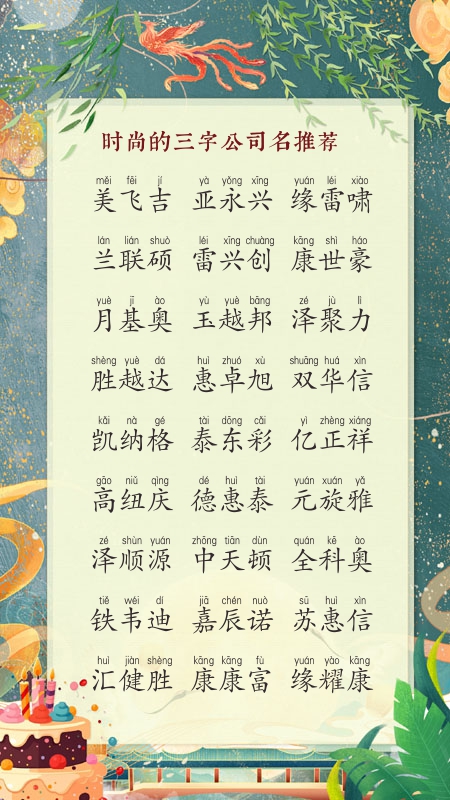 时尚的三字公司名推荐
měi fēi jí yà yǒng xīng yuán léi xiào
美飞吉 亚永兴 缘雷啸
lán lián shuò léi xīng chuàng kāng shì háo
兰联硕 雷兴创 康世豪
yuè jī ào yù yuè bāng zé jù lì
月基奥 玉越邦 泽聚力
shèng yuè dá huì zhuó xù shuāng huá xìn
胜越达 惠卓旭 双华信
kǎi nà gé tài dōng cǎi yì zhèng xiáng
凯纳格 泰东彩 亿正祥
gāo niǔ qìng dé huì tài yuán xuán yǎ
高纽庆 德惠泰 元旋雅
zé shùn yuán zhōng tiān dùn quán kē ào
泽顺源 中天顿 全科奥
tiě wéi dí jiā chén nuò sū huì xìn
铁韦迪 嘉辰诺 苏惠信
huì jiàn shèng kāng kāng fù yuán yào kāng
汇健胜 康康富 缘耀康